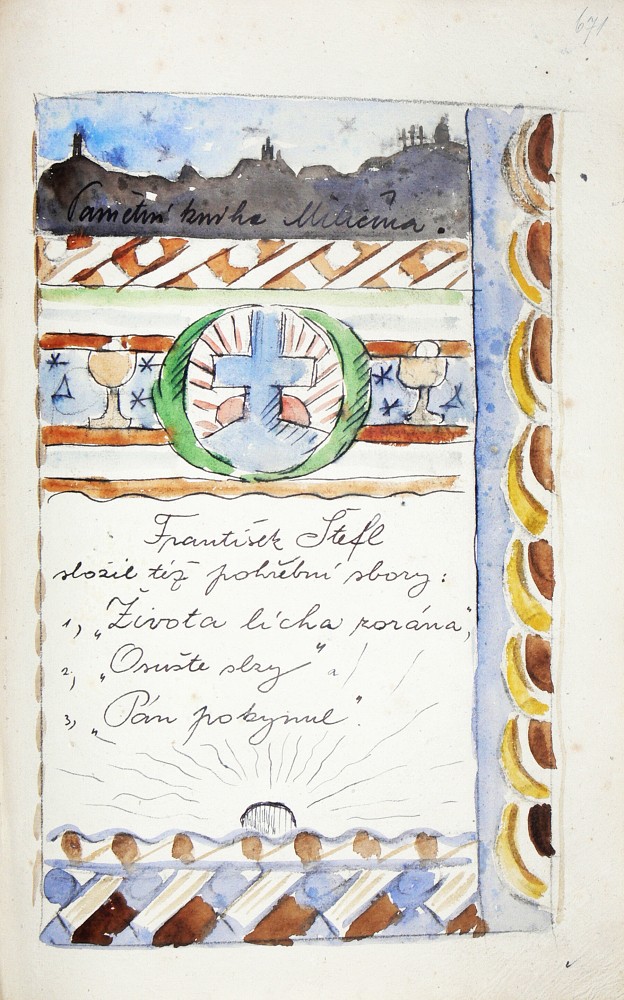 671
Pamětní kniha Miličína.
František Štefl
složil též pohřební sbory:
1, „Života lícha zorána",
2, „Osušte slzy" a
3, „Pán pokynul".